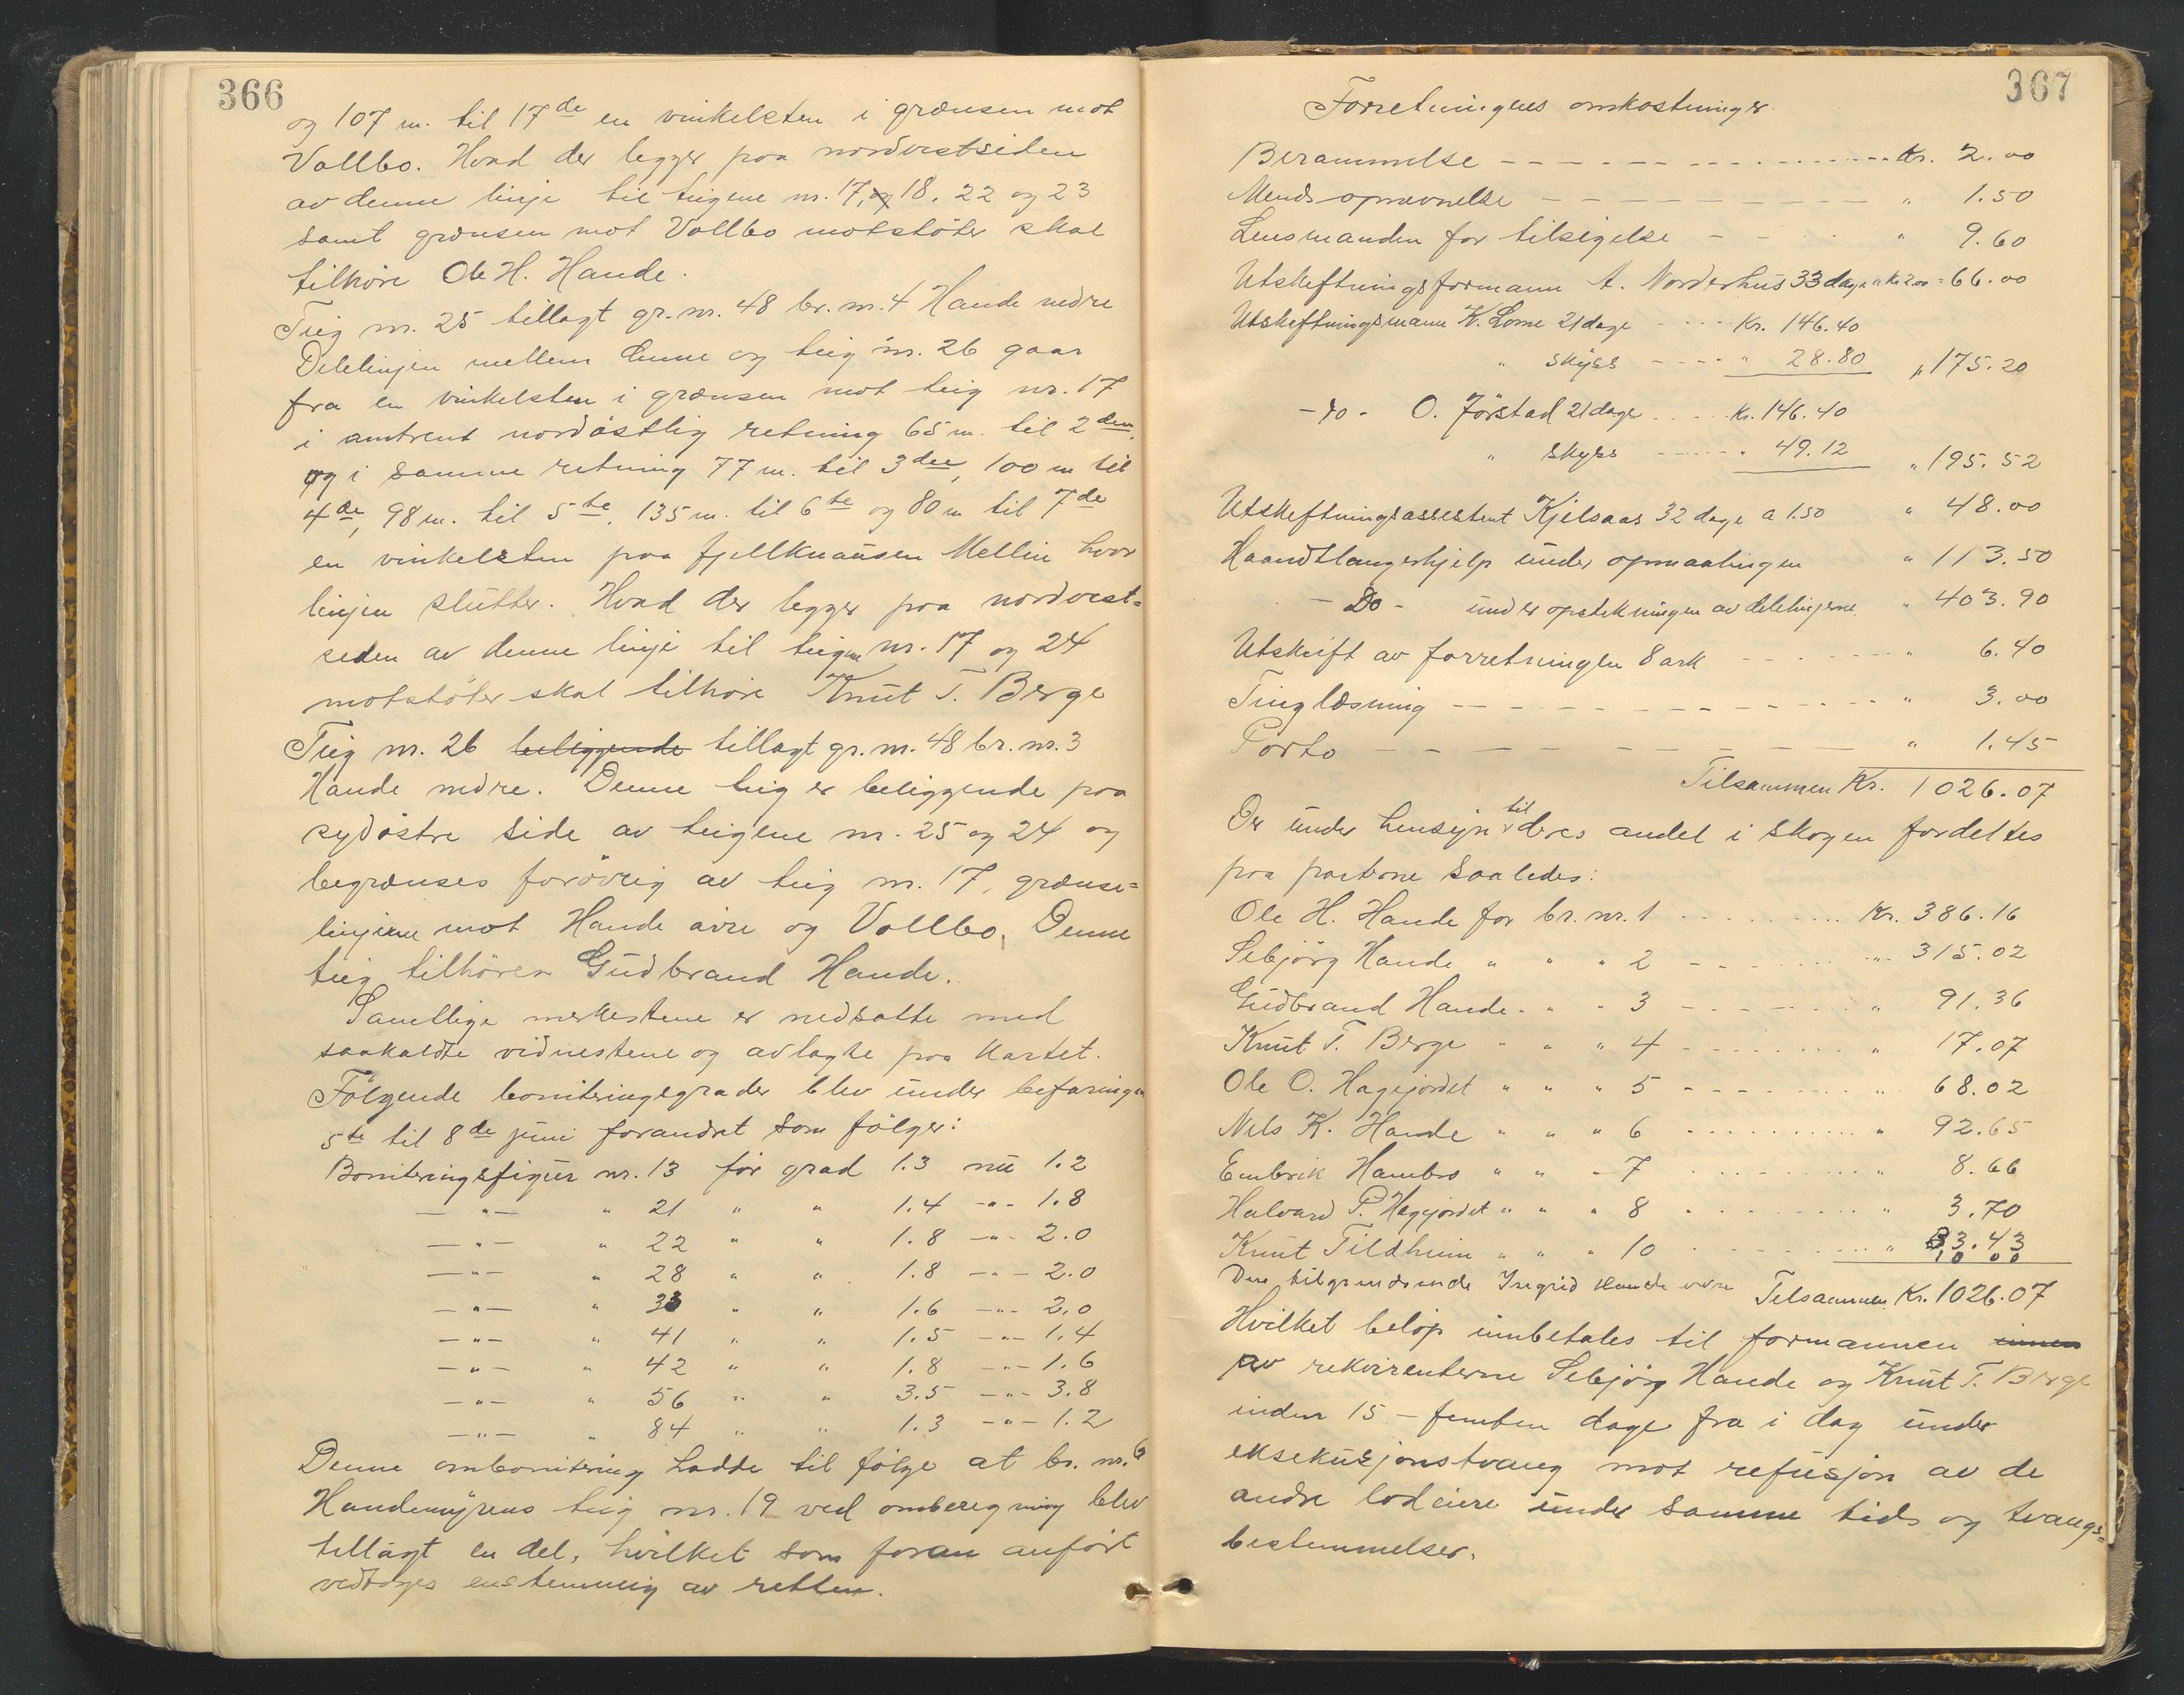 366
og 107 m. til 17de en vinkelsten i grænsen mot
Vollbo. Hvad der legger paa nordvestsiden
av denne linje til teigene nr. 17, og 18, 22 og 23
samt grænsen mot Vollbo motstöter skal
tilhöre Ole H. Hande.
Teig nr. 25 tillagt gr. nr. 48 br. nr. 4 Hande nedre
Delelinjen mellem denne og teig nr. 26 gaar
fra en vinkelsten i grænsen mot teig nr. 17
i omtrent nordöstlig retning 65 m. til 2den,
og i samme retning 77 m. til 3dje, 100 m til
4de, 98 m. til 5te, 135 m. til 6te og 80 m til 7de
en vinkelsten paa fjellknausen Mellin hvor
linjen slutter. Hvad der legger paa nordvest=
siden av denne linje til teigene nr. 17 og 24
motstöter skal tilhöre Knut T. Berge
Teig nr. 26 beliggende tillagt gr. nr. 48 br. nr. 3
Hande nedre. Denne teig er beliggende paa
sydöstre side av teigene nr. 25 og 24 og
begrænses forövrig av teig nr. 17, grænse=
linjerne mot Hande övre og Vollbo. Denne
teig tilhörer Gudbrand Hande.
Samtlige merkestene er nedsatte med
saakaldte vidnestene og avlagte paa kartet.
Fölgende boniteringsgrader blev under befaringen
5te til 8de juni forandret som fölger:
Boniteringsfigur nr. 13 för grad 1.3 nu 1.2
— " — " 21 " " 1.4 - " - 1.8
— " — " 22 " " 1.8 - " - 2.0
— " — " 28 " " 1.8 - " - 2.0
— " — " 33 " " 1.6 - " - 2.0
— " — " 41 " " 1.5 - " - 1.4
— " — " 42 " " 1.8 - " - 1.6
— " — " 56 " " 3.5 - " - 3.8
— " — " 84 " " 1.3 - " - 1.2
Denne ombonitering hadde til fölge at br. nr. 6
Handemyrens teig nr. 19 ved omberegning blev
tillagt en del, hvilket som foran anfört
vedtoges enstemmig av retten.
367
Forretningens omkostninger.
Berammelse - - - - - Kr. 2.00
Mendsopnævnelse - - - - - " 1.50
Lensmanden for tilsigelse - - - " 9.60
Utskiftningsformann A. Norderhus 33 dage a Kr 2.00 = 66.00
Utskiftningsmann K. Lome 21 dage - - - Kr. 146.40
" skyss - - - " 28.80 " 175.20
- Do - O. Jörstad 21 dage - - - Kr. 146.40
" skyss - - - " 49.12 " 195.52
Utskiftningsassistent Kjelsaas 32 dage a 1.50 " 48.00
Haandtlangerhjelp under opmaalingen " 113.50
- Do - under opstikningen av delelinjerne " 403.90
Utskrift av forretningen 8 ark - - - " 6.40
Tinglæsning - - - - - " 3.00
Porto - - - - - " 1.45
Tilsammen Kr. 1026.07
Der under hensyn til deres andel i skogen fordeltes
paa parterne saaledes:
Ole H. Hande for br. nr. 1 - - - Kr. 386.16
Sebjörg Hande " " " 2 - - - " 315.02
Gudbrand Hande " " " 3 - - - " 91.36
Knut T. Berge " " " 4 - - - " 17.07
Ole O. Hagejordet " " " 5 - - - " 68.02
Nils K. Hande " " " 6 - - - " 92.65
Embrik Hambro " " " 7 - - - " 8.66
Halvard P. Hagejordet " " " 8 - - - " 3.70
Knut Tildheim " " " 10 - - - " 33.43
Den tilgrænsende Ingrid Hande övre 10 00
Tilsammen Kr. 1026.07
Hvilket belöp innbetales til formannen innen
av rekvirenterne Sebjörg Hande og Knut T. Berge
inden 15 - femten dage fra i dag under
eksekusjonstvang mot refusjon av de
andre lodeiere under samme tids og tvangs=
bestemmelser.